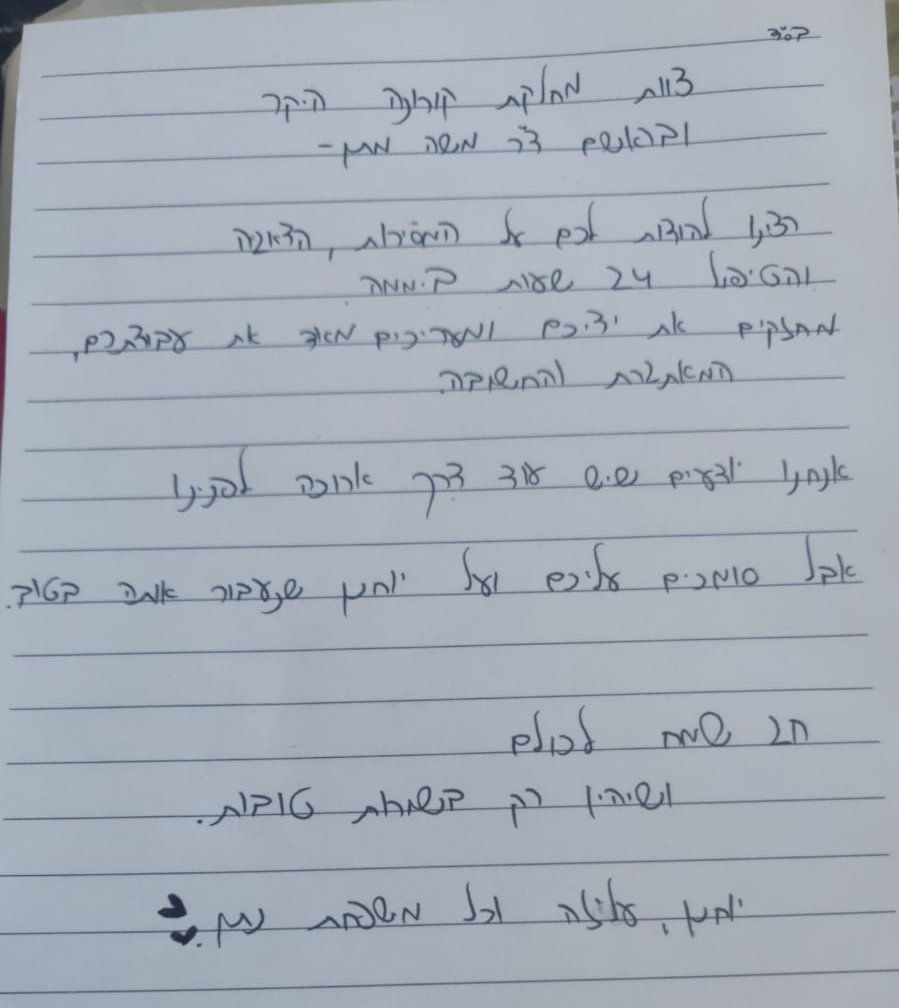 בס״ד
צוות מחלקת קורונה היקר
ובראשם ד״ר משה מתן -
רצינו להודות לכם על המסירות, הדאגה
והטיפול 24 שעות ביממה.
מחזקים את ידיכם ומעריכים מאוד את עבודתכם,
המאתגרת והחשובה.
אנחנו יודעים שיש עוד דרך ארוכה לפנינו
אבל סומכים עליכם ועל יוחנן שנעבור אותה בטוב.
חג שמח לכולם
ושיהיו רק בשורות טובות.
יוחנן, עליזה וכל משפחת נתן.